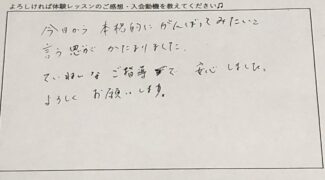 よろしければ体験レッスンのご感想・入会動機を教えてください♫
今日から 本格的に がんばってみたいと
言う思が かたまりました。
ていねいな ご指導で 安心しました。
よろしく お願いします。